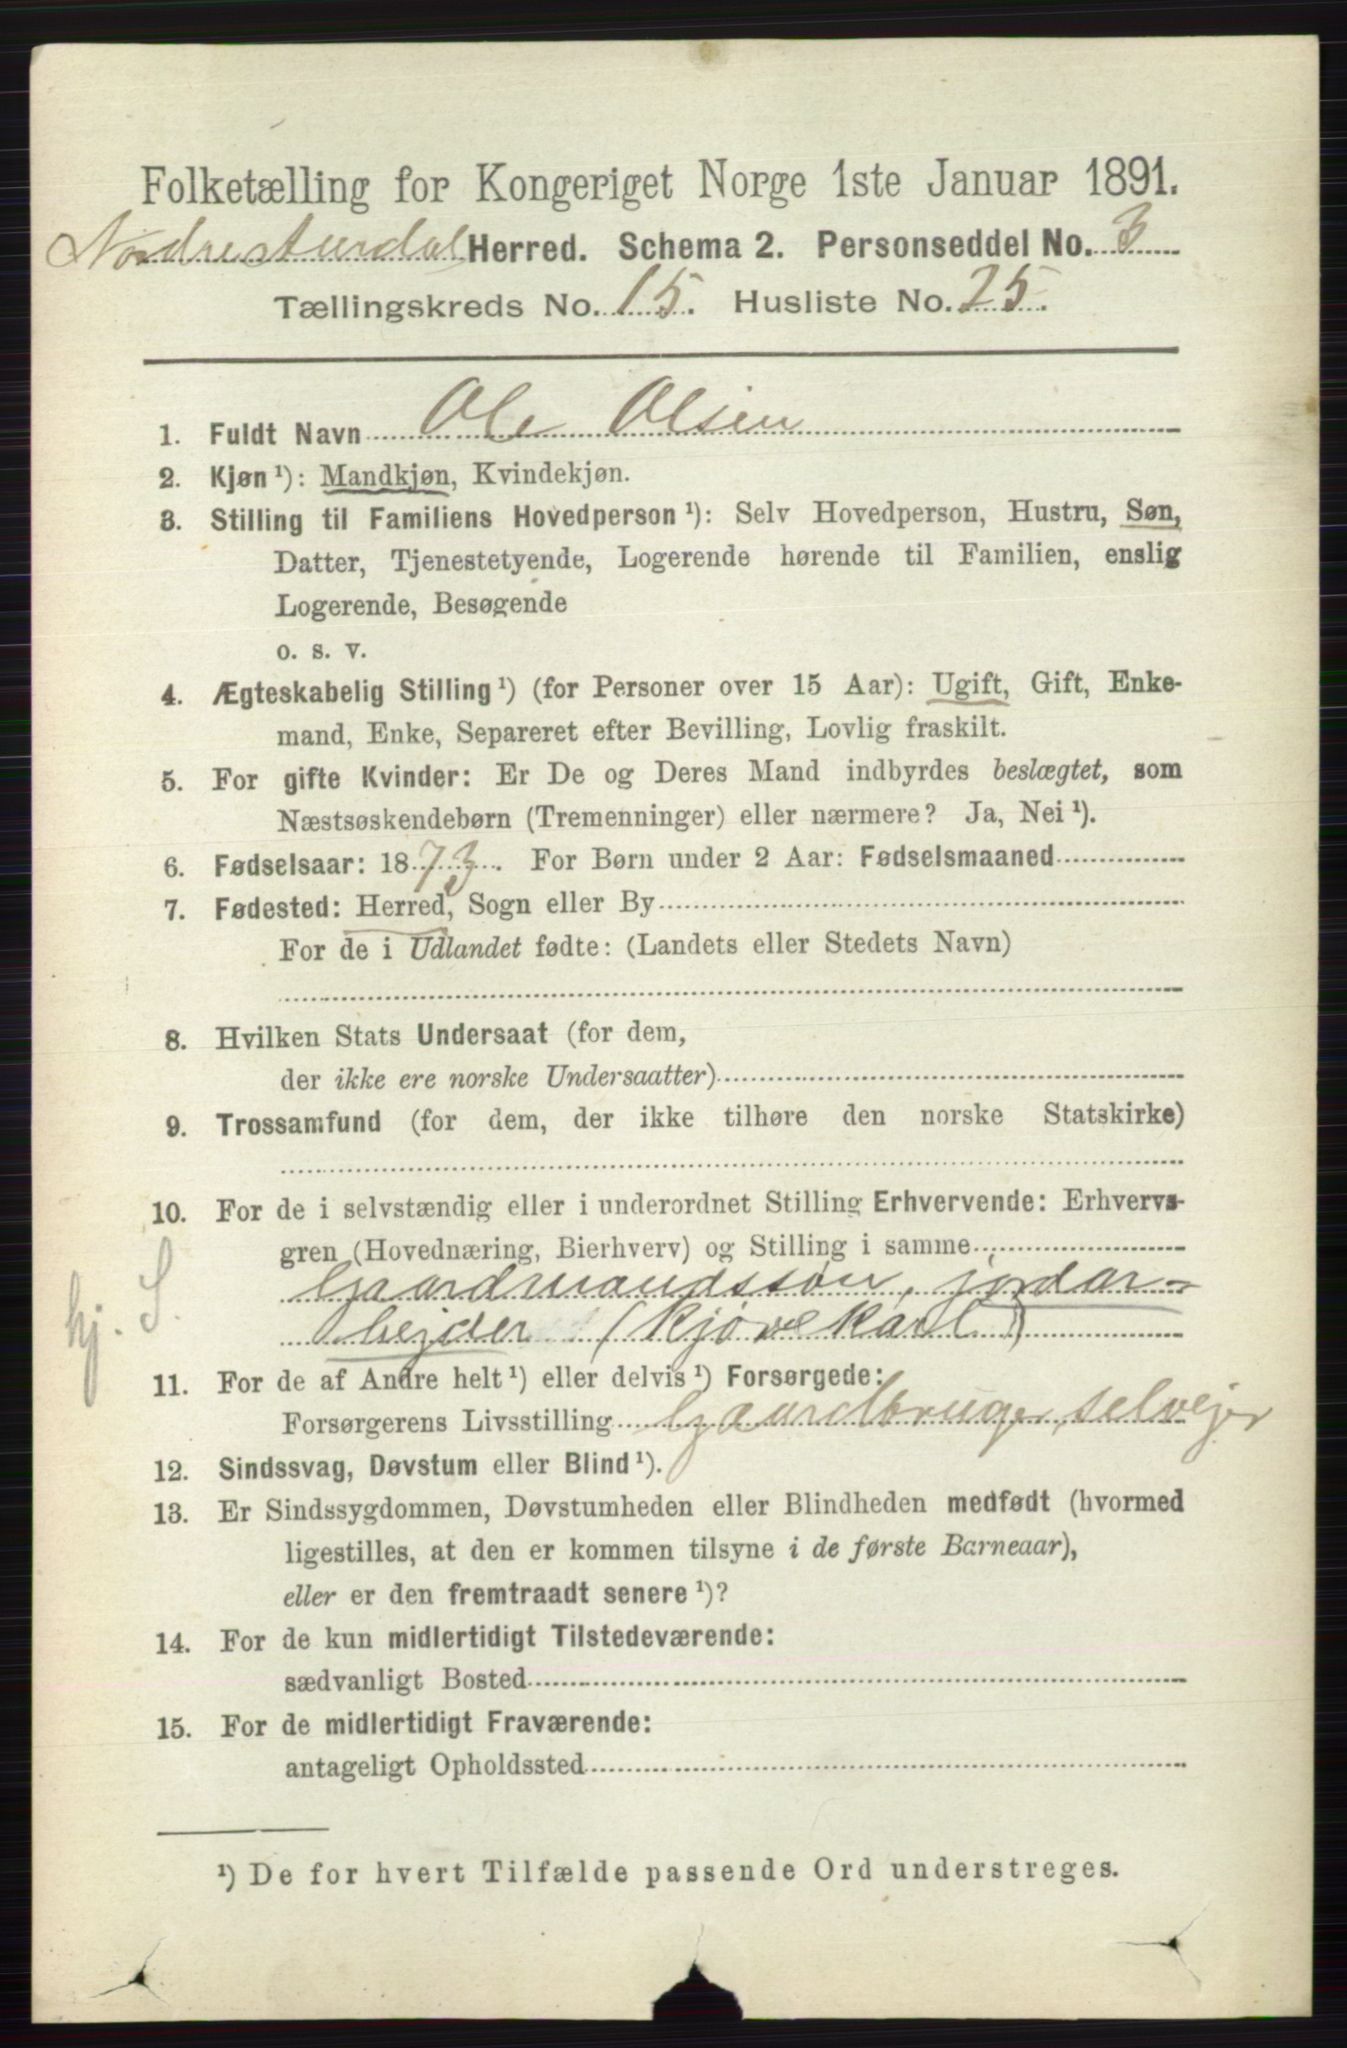 Folketælling for Kongeriget Norge 1ste Januar 1891.
Nordre Aurdal Herred. Schema 2. Personseddel No. 3
Tællingskreds No. 15. Husliste No. 25.
1. Fuldt Navn Ole Olsen
2. Kjøn ¹): Mandkjøn, Kvindekjøn.
3. Stilling til Familiens Hovedperson ¹): Selv Hovedperson, Hustru, Søn,
Datter, Tjenestetyende, Logerende hørende til Familien, enslig
Logerende, Besøgende
o. s. v.
4. Ægteskabelig Stilling ¹) (for Personer over 15 Aar): Ugift, Gift, Enke-
mand, Enke, Separeret efter Bevilling, Lovlig fraskilt.
5. For gifte Kvinder: Er De og Deres Mand indbyrdes beslægtet, som
Næstsøskendebørn (Tremenninger) eller nærmere? Ja, Nei ¹).
6. Fødselsaar: 1873. For Børn under 2 Aar: Fødselsmaaned
7. Fødested: Herred, Sogn eller By
For de i Udlandet fødte: (Landets eller Stedets Navn)
8. Hvilken Stats Undersaat (for dem,
der ikke ere norske Undersaatter)
9. Trossamfund (for dem, der ikke tilhøre den norske Statskirke)
10. For de i selvstændig eller i underordnet Stilling Erhvervende: Erhvervs-
gren (Hovednæring, Bierhverv) og Stilling i samme
Gaardmandssøn, jordar-
hj. S. bejder (Kjørekarl)
11. For de af Andre helt ¹) eller delvis ¹) Forsørgede:
Forsørgerens Livsstilling Gaardbruger, selvejer
12. Sindssvag, Døvstum eller Blind ¹).
13. Er Sindssygdommen, Døvstumheden eller Blindheden medfødt (hvormed
ligestilles, at den er kommen tilsyne i de første Barneaar),
eller er den fremtraadt senere ¹)?
14. For de kun midlertidigt Tilstedeværende:
sædvanligt Bosted
15. For de midlertidigt Fraværende:
antageligt Opholdssted
¹) De for hvert Tilfælde passende Ord understreges.